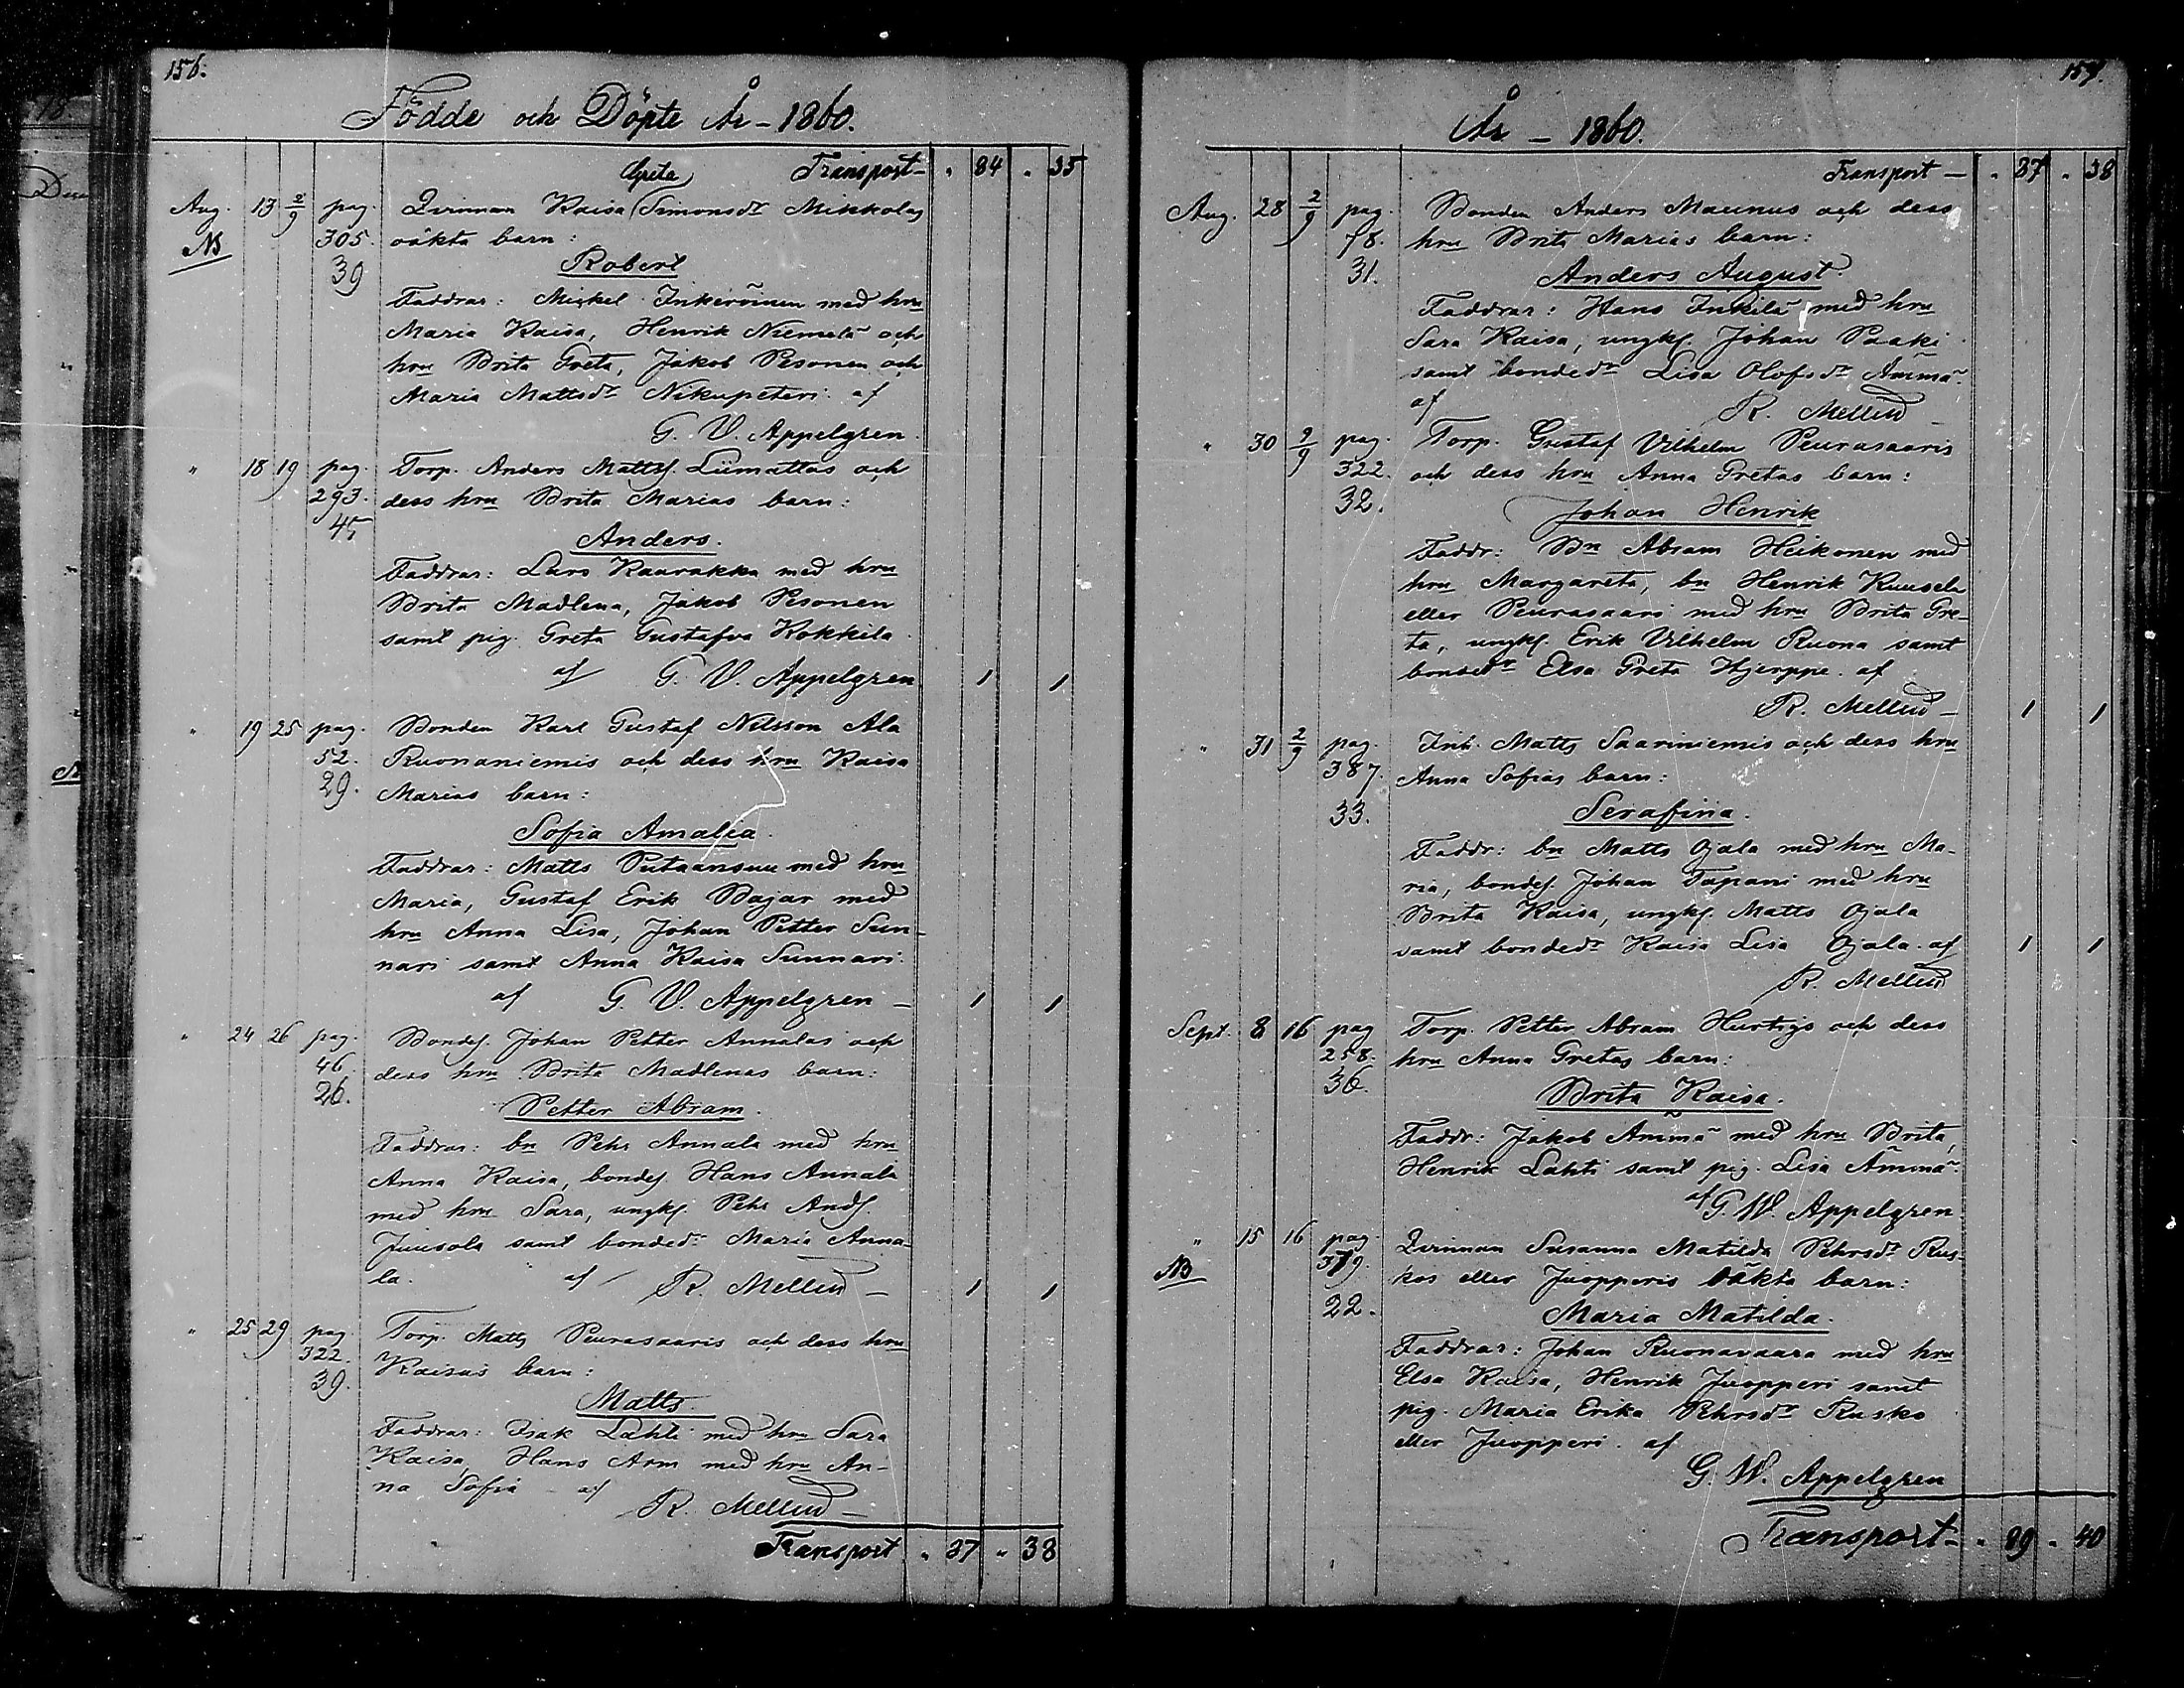 156.
Födde och Döpte År - 1860.
Greta Transport - " 84 " 35
Aug. 13 2/9 pag. Qvinnan Kaisa Simonsdr Mikkolas
NB 305. oäkta barn:
39 Robert
Faddrar: Mickel Inkeröinen med hru
Maria Kaisa, Henrik Niemelä och
hru Brita Greta, Jakob Pesonen och
Maria Mattsdr Nikupeteri. af
G. V. Appelgren.
" 18 19 pag. Torp. Anders Mattsf. Liimattas och
293. dess hru Brita Marias barn:
45 Anders.
Faddrar: Lars Kaarakka med hru
Brita Madlena, Jakob Pesonen
samt pig. Greta Gustafva Kokkila
af G. V. Appelgren 1 1
" 19 25 pag. Bonden Karl Gustaf Nilsson Ala
52. Ruonaniemis och dess hru Kaisa
29. Marias barn:
Sofia Amalia.
Faddrar: Matts Putaansuu med hru
Maria, Gustaf Erik Bajar med
hru Anna Lisa, Johan Petter Sun-
nari samt Anna Kaisa Sunnari.
af G. V. Appelgren - 1 1
" 24 26 pag. Bondes. Johan Petter Annalas och
46. dess hru Brita Madlenas barn:
26. Petter Abram.
Faddrar: bn Pehr Annala med hru
Anna Kaisa, bondes. Hans Annala
med hru Sara, ungk. Pehr Andf.
Juusola samt bondedr Maria Anna-
la. af R. Mellin - 1 1
" 25 29 pag. Torp. Matts Peurasaaris och dess hru
322. Kaisas barn:
39. Matts.
Faddrar: Isak Lahti med hru Sara
Kaisa, Hans Arm med hru An-
na Sofia - af R. Mellin -
Transport " 37 " 38
157.
År - 1860.
Transport - " 37 " 38
Aug. 28 2/9 pag. Bonden Anders Maunus och dess
78. hru Brita Marias barn:
31. Anders August.
Faddrar: Hans Inkilä med hru
Sara Kaisa, ungk. Johan Paaki
samt bondedr Lisa Olofsdr Ämmä.
af R. Mellin
" 30 9/9 pag. Torp. Gustaf Vilhelm Peurasaaris
322. och dess hru Anna Gretas barn:
32. Johan Henrik
Faddr: Bn Abram Heikonen med
hru Margareta, bn Henrik Kuusela
eller Peurasaari med hru Brita Gre-
ta, ungk. Erik Vilhelm Ruona samt
bondedr Elsa Greta Hjerppe. af
R. Mellin - 1 1
" 31 2/9 pag. Inh. Matts Saariniemis och dess hru
387. Anna Sofias barn:
33. Serafina.
Faddr: bn Matts Ojala med hru Ma-
ria, bondes. Johan Tapani med hru
Brita Kaisa, ungk. Matts Ojala
samt bondedr Kaisa Lisa Ojala. af 1 1
R. Mellin
Sept. 8 16 pag Torp. Petter Abram Hurtigs och dess
258. hru Anna Gretas barn:
36. Brita Kaisa.
Faddr: Jakob Ämmä med hru Brita,
Henrik Lahti samt pig. Lisa Ämmä.
af G. W. Appelgren
" 15 16 pag. Qvinnan Susanna Matilda Pehrsdr Rus-
NB 379. kos eller Juopperis oäkta barn:
22. Maria Matilda.
Faddrar: Johan Ruonavaara med hru
Elsa Kaisa, Henrik Juopperi samt
pig. Maria Erika Pehrsdr Rusko
eller Juopperi. af
G. W. Appelgren
Transport - " 89 " 40